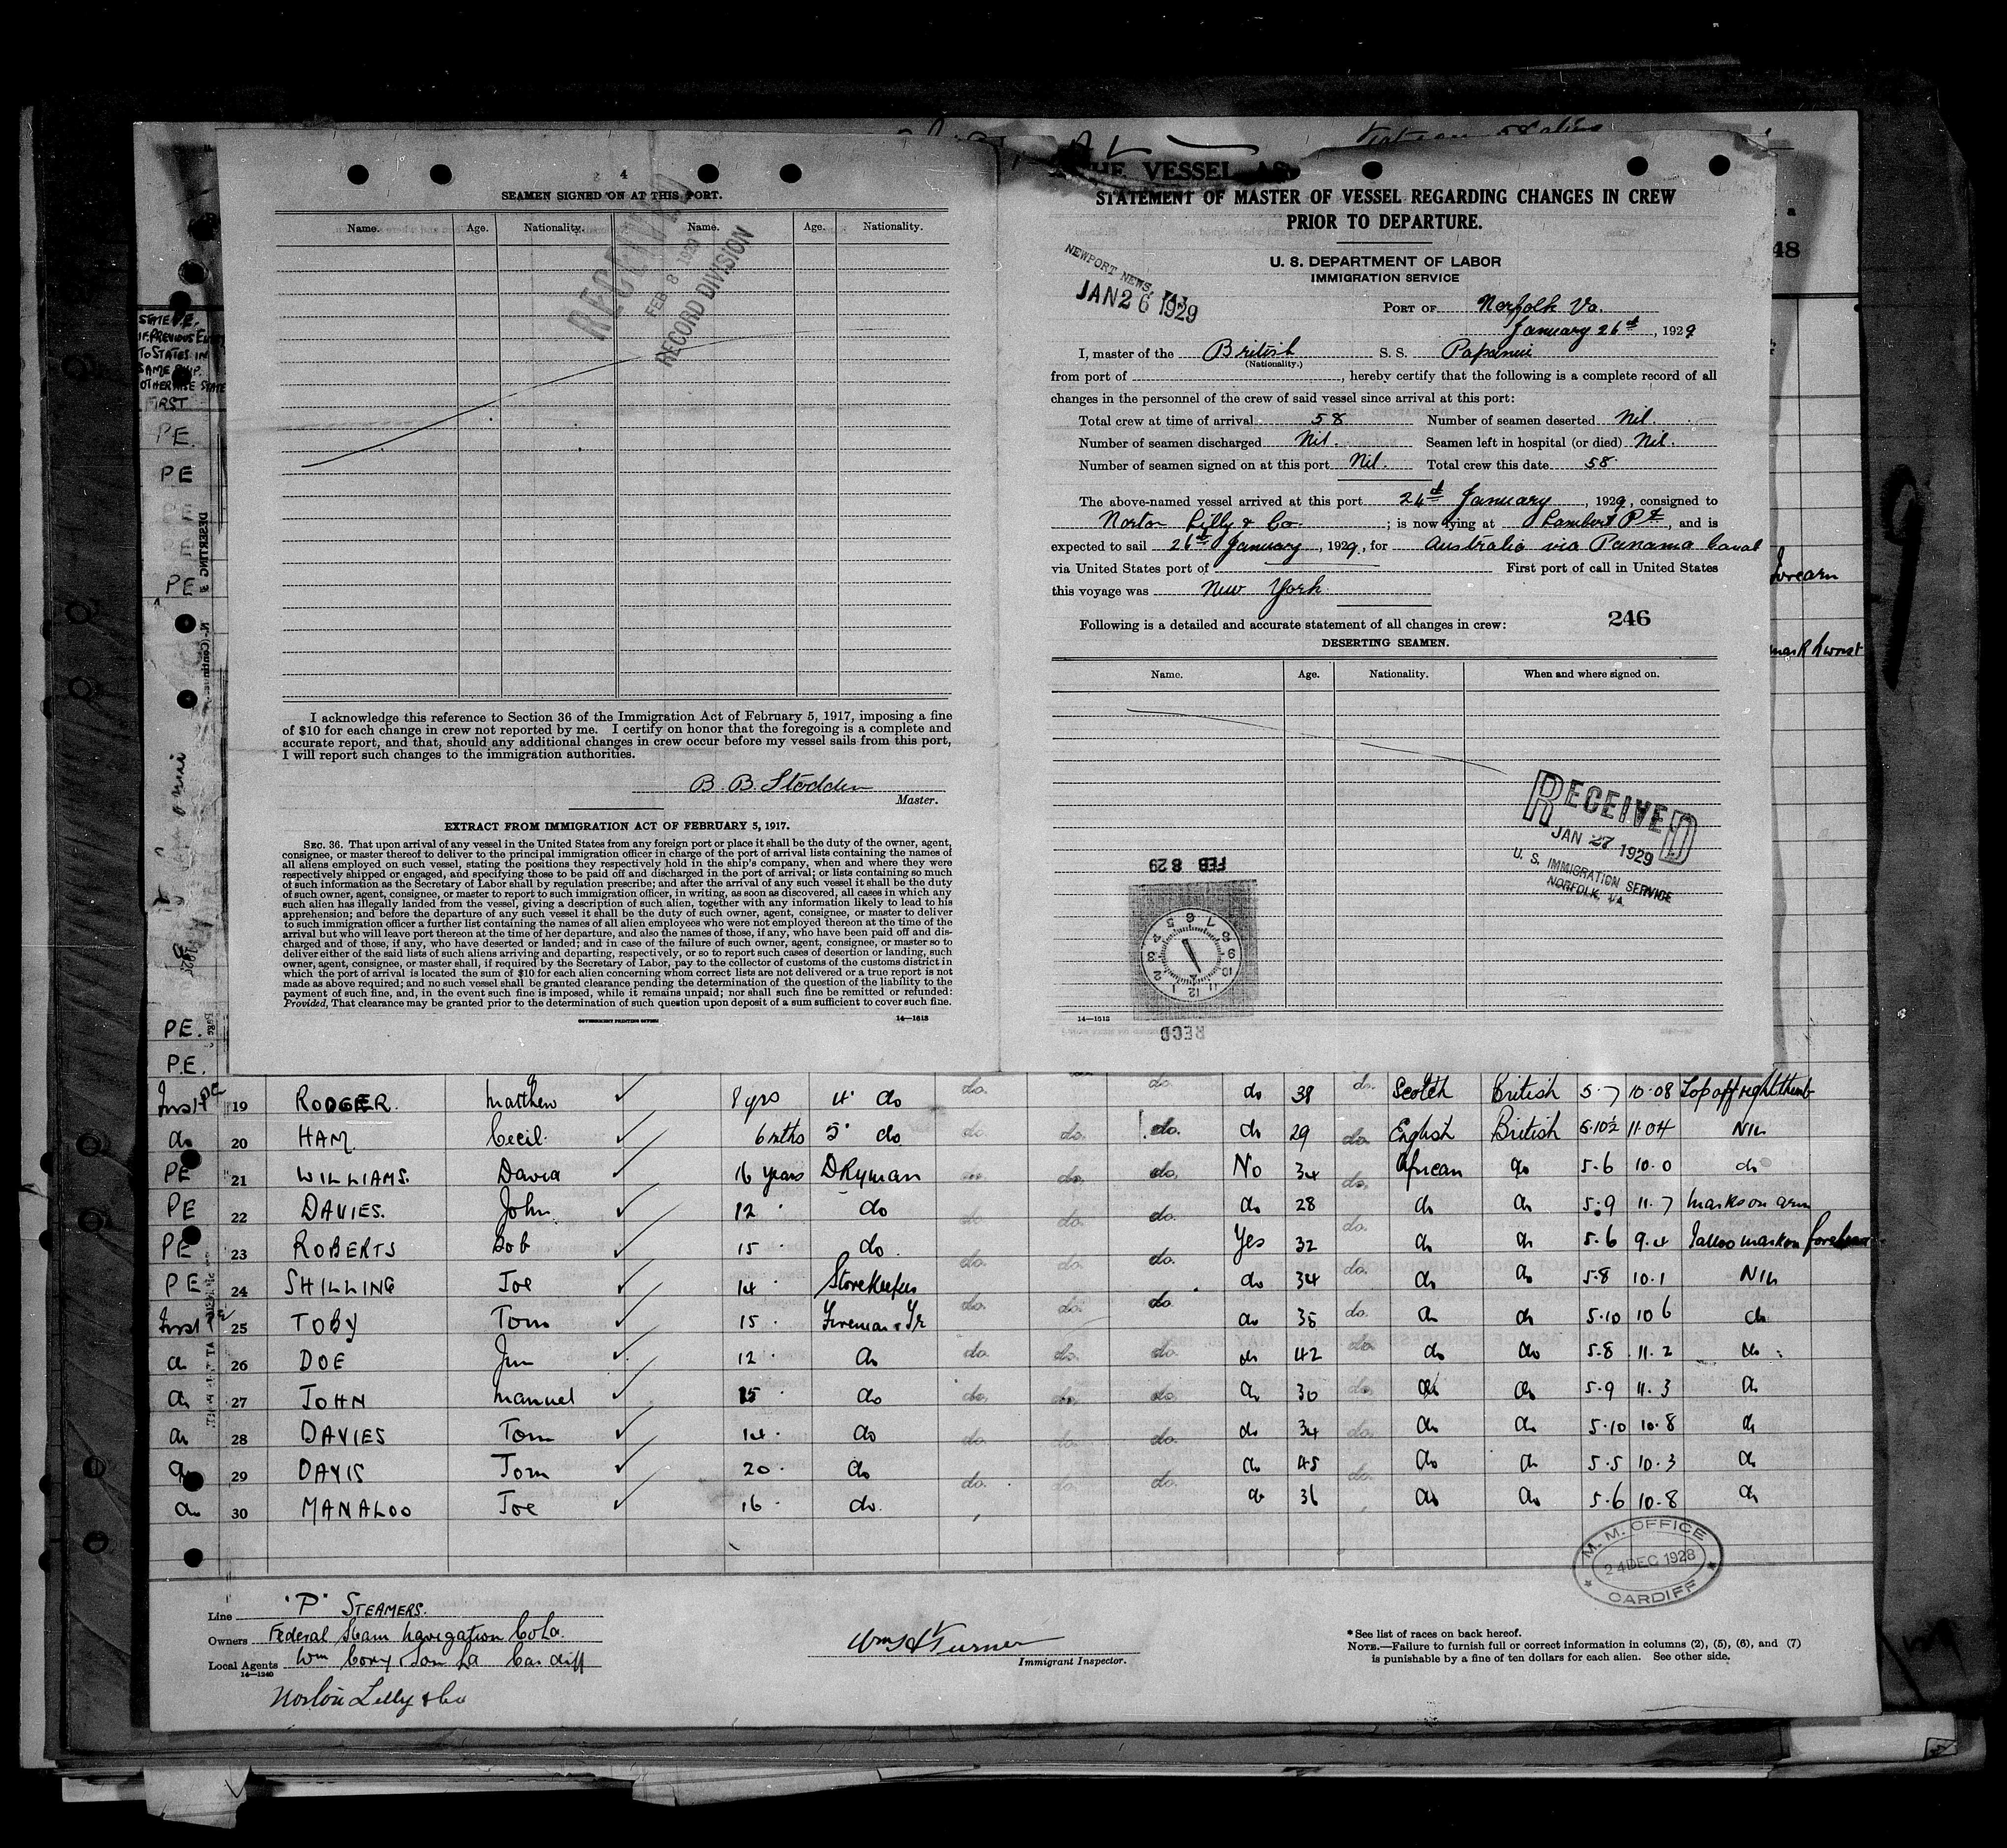 4
SEAMEN SIGNED ON AT THIS PORT.
Name. Age. Nationality. Name. Age. Nationality.
RECEIVED
FEB 8 1929
RECORD DIVISION
I acknowledge this reference to Section 36 of the Immigration Act of February 5, 1917, imposing a fine
of $10 for each change in crew not reported by me. I certify on honor that the foregoing is a complete and
accurate report, and that, should any additional changes in crew occur before my vessel sails from this port,
I will report such changes to the immigration authorities.
B. B. Stodden
Master.
EXTRACT FROM IMMIGRATION ACT OF FEBRUARY 5, 1917.
SEC. 36. That upon arrival of any vessel in the United States from any foreign port or place it shall be the duty of the owner, agent,
consignee, or master thereof to deliver to the principal immigration officer in charge of the port of arrival lists containing the names of
all aliens employed on such vessel, stating the positions they respectively hold in the ship's company, when and where they were
respectively shipped or engaged, and specifying those to be paid off and discharged in the port of arrival; or lists containing so much
of such information as the Secretary of Labor shall by regulation prescribe; and after the arrival of any such vessel it shall be the duty
of such owner, agent, consignee, or master to report to such immigration officer, in writing, as soon as discovered, all cases in which any
such alien has illegally landed from the vessel, giving a description of such alien, together with any information likely to lead to his
apprehension; and before the departure of any such vessel it shall be the duty of such owner, agent, consignee, or master to deliver
to such immigration officer a further list containing the names of all alien employees who were not employed thereon at the time of the
arrival but who will leave port thereon at the time of her departure, and also the names of those, if any, who have been paid off and dis-
charged and of those, if any, who have deserted or landed; and in case of the failure of such owner, agent, consignee, or master so to
deliver either of the said lists of such aliens arriving and departing, respectively, or so to report such cases of desertion or landing, such
owner, agent, consignee, or master shall, if required by the Secretary of Labor, pay to the collector of customs of the customs district in
which the port of arrival is located the sum of $10 for each alien concerning whom correct lists are not delivered or a true report is not
made as above required; and no such vessel shall be granted clearance pending the determination of the question of the liability to the
payment of such fine, and, in the event such fine is imposed, while it remains unpaid; nor shall such fine be remitted or refunded:
Provided, That clearance may be granted prior to the determination of such question upon deposit of a sum sufficient to cover such fine.
GOVERNMENT PRINTING OFFICE 14—1613
THE VESSEL AS
STATEMENT OF MASTER OF VESSEL REGARDING CHANGES IN CREW
PRIOR TO DEPARTURE.
U. S. DEPARTMENT OF LABOR
IMMIGRATION SERVICE
NEWPORT NEWS, VA.
JAN 26 1929
PORT OF Norfolk Va.
January 26th, 1929
I, master of the British S. S. Papanui
(Nationality.)
from port of , hereby certify that the following is a complete record of all
changes in the personnel of the crew of said vessel since arrival at this port:
Total crew at time of arrival 58 Number of seamen deserted Nil.
Number of seamen discharged Nil. Seamen left in hospital (or died) Nil.
Number of seamen signed on at this port Nil. Total crew this date 58.
The above-named vessel arrived at this port 24th January, 1929, consigned to
Norton Lilly & Co. ; is now lying at Lambert Pt, and is
expected to sail 26th January, 1929, for Australia via Panama Canal
via United States port of First port of call in United States
this voyage was New York.
246
Following is a detailed and accurate statement of all changes in crew:
DESERTING SEAMEN.
Name. Age. Nationality. When and where signed on.
RECEIVED
JAN 27 1929
U. S. IMMIGRATION SERVICE
NORFOLK, VA.
FEB 8 29
1 2 3 4 5 6 7 8 9 10 11 12
RECD
14—1613
48
STATE P.E.
IF PREVIOUS ENTRY
TO STATES IN
SAME SHIP.
OTHERWISE STATE
FIRST
PE.
PE
PE
PE.
P.E.
forearm
mark h wrist
19 RODGER. Matthew 8 yrs 4' do do. do. do 38 do. Scotch British 5-7 10.08 Top off right thumb
do 20 HAM Cecil. 6 mths 5' do do do. do. do 29 do. English British 5.10½ 11.04 Nil
PE 21 WILLIAMS. David 16 years DKyman do. do. No 34 do. African do 5.6 10.0 do
PE 22 DAVIES. John 12 do do do. do. do 28 do do 5.9 11.7 marks on arm
PE 23 ROBERTS Bob 15 do. do. do. do. Yes 32 do. do do 5.6 9.4 Tattoo mark on forehead
PE 24 SHILLING Joe 14 Storekeeper do. do. do 34 do. do do 5.8 10.1 Nil
25 TOBY Tom 15 Fireman & Tr do. do. do do 35 do. do do 5.10 10 6 do
do 26 DOE Jim 12 do do. do. do. do 42 do do do 5.8 11.2 do
do 27 JOHN Manuel 15 do do. do. do. do 30 do. do do 5.9 11.3 do
do 28 DAVIES Tom 14 do do. do. do. do 34 do. do do 5.10 10.8 do
do 29 DAVIS Tom 20 do do. do. do. do 45 do. do do 5.5 10.3 do
do 30 MANALOO Joe 16 do. do 36 do do 5.6 10.8 do
M. M. OFFICE
24 DEC 1928
CARDIFF
Line "P" STEAMERS.
Owners Federal Steam Navigation Co Ld.
Local Agents Wm Cory & Son Ld Cardiff
14—1240
Norton Lilly & Co
Wm H Turner
Immigrant Inspector.
* See list of races on back hereof.
NOTE.—Failure to furnish full or correct information in columns (2), (5), (6), and (7)
is punishable by a fine of ten dollars for each alien. See other side.